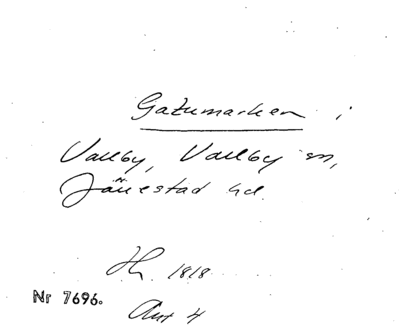 Gatumarken i
Vallby, Vallby sn,
Järrestad hd.
1818
Nr 7696.
4